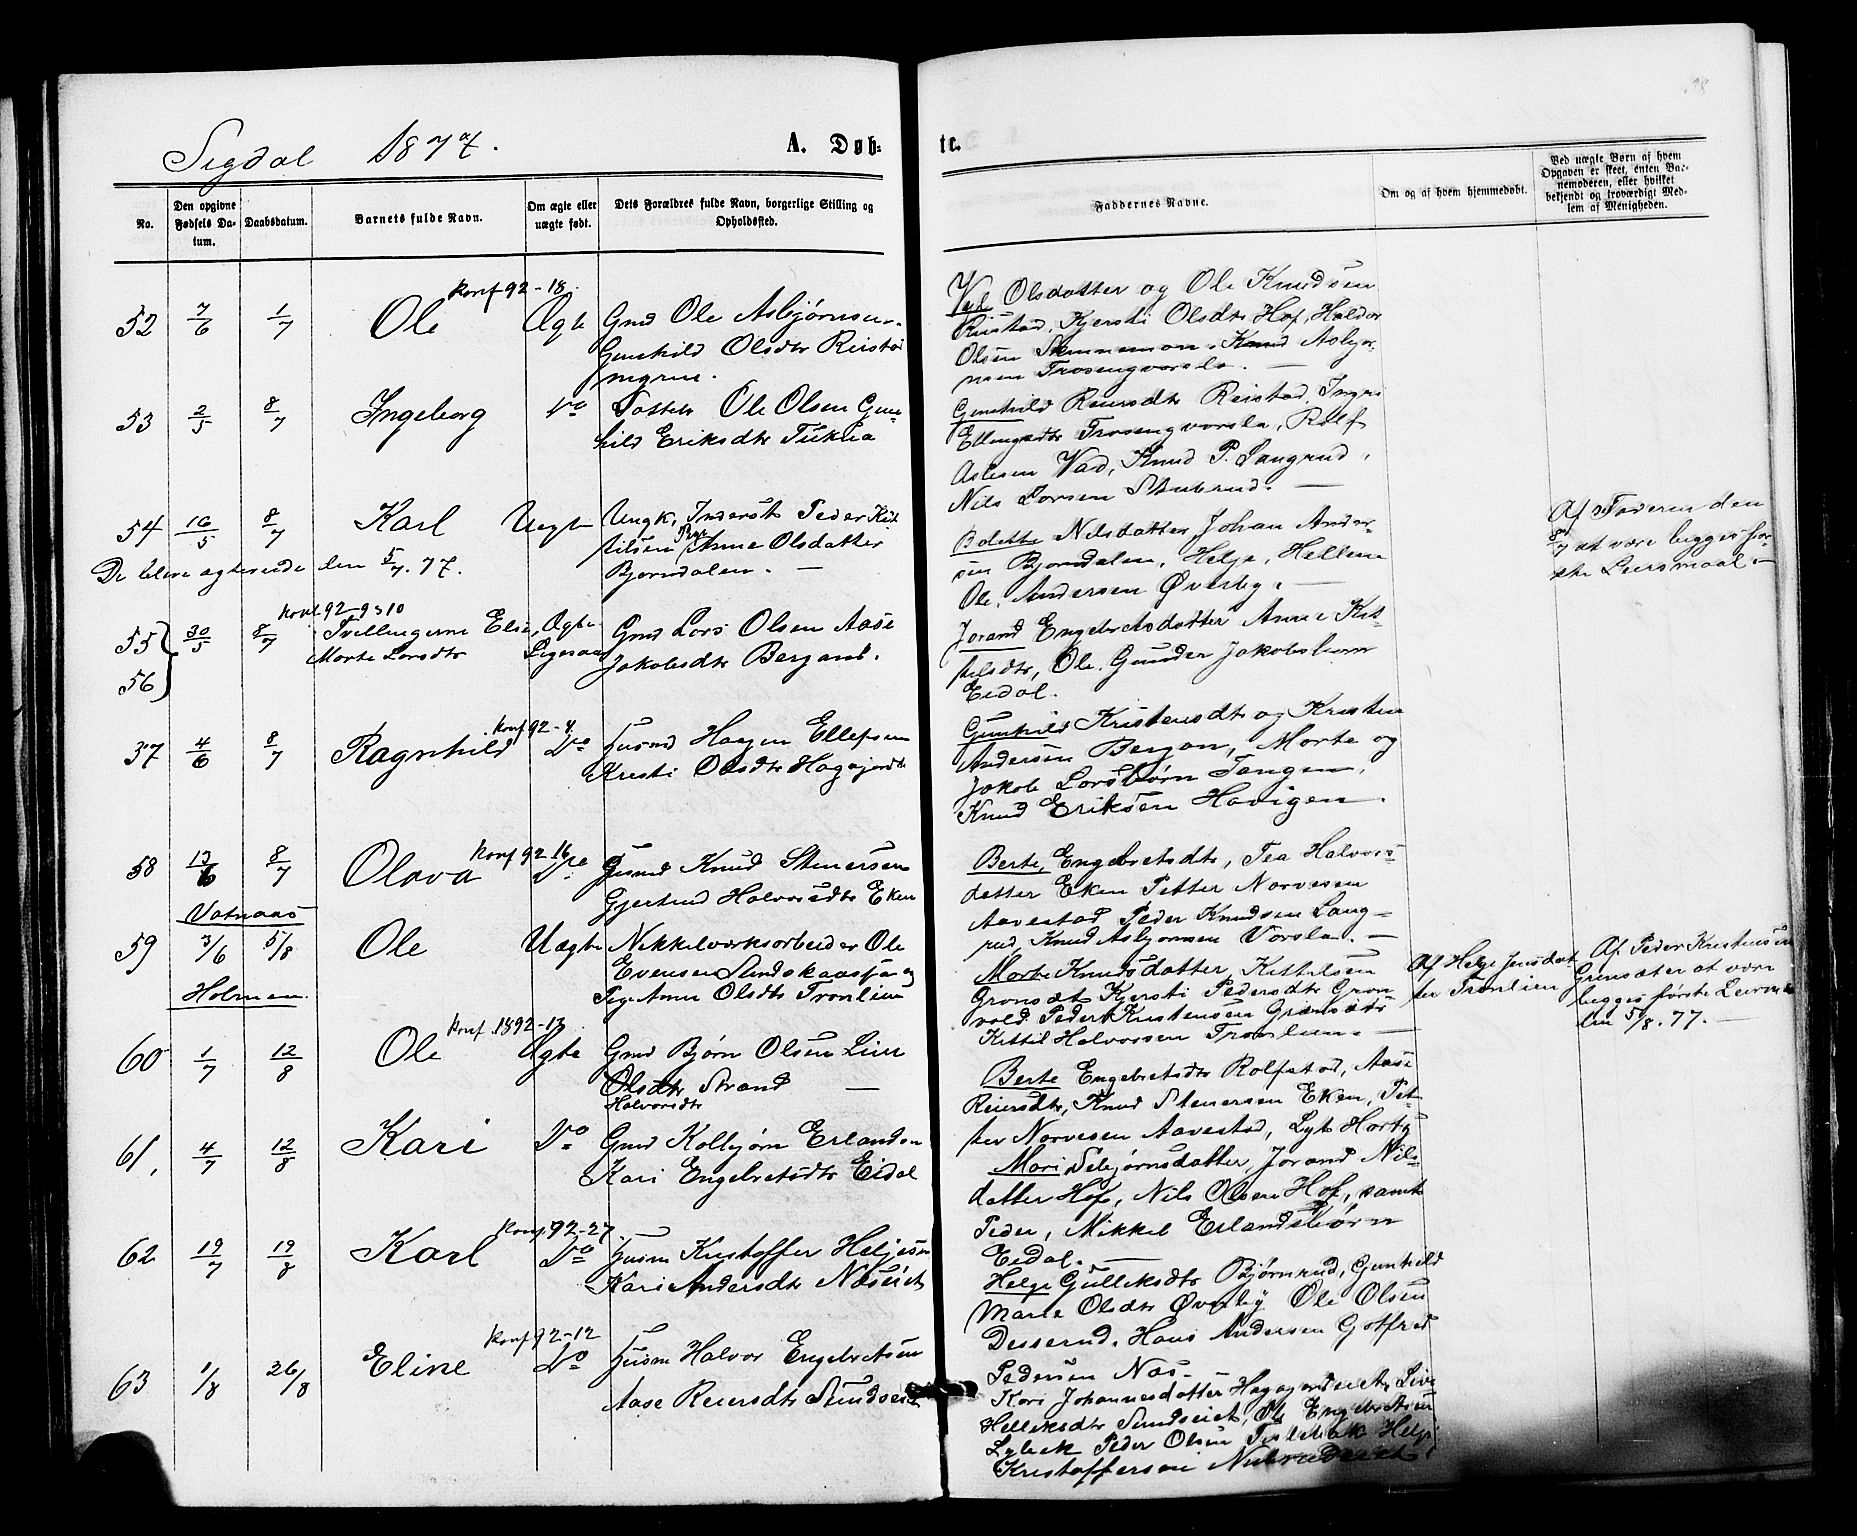 Sigdal 1877.
A. Døb-
te.
No.
Den opgivne Fødsels Da-tum.
Daabsdatum.
Barnets fulde Navn.
Om ægte eller uægte født.
Dets Forældres fulde Navn, borgerlige Stilling og Opholdssted.
Faddernes Navne.
Om og af hvem hjemmedøbt.
Ved uægte Børn af hvem Opgaven er skeet, enten Bar-nemoderen, eller hvilket bekjendt og troværdigt Med-lem af Menigheden.
Konf 92-18.
52 7/6 1/7 Ole Ægte Gmd Ole Asbjørnsen
Gunhild Olsdtr Reistad
Olsdatter og Ole Knudsen
Reistad, Kjersti Olsdtr Hof, Haldor
Olsen. Knud Asbjør-
nsen Trosengvorsla.
53 2/5 8/7 Ingeborg Do Ole Olsen Gun-
hild Eriksdtr
Gunhild Reiersdtr Reistad, Ingri
Ellingsdtr Trosengvorsla, Rolf
Aslesen Vad, Knud P. Langrud,
Nils Larsen Stubrud.
54 16/5 8/7 Karl Uegte Ungk. Inderst Peder Kit
tilsen Pige Anne Olsdatter
Bjørndalen.
De bleve ægteviede den 5/7.77.
Bolette Nilsdatter Johan Ander-
sen Bjørndalen, Helge, Hellene
Ole Andersen Øverby.
Af Faderen den
8/7 at være begges før-
ste Leiersmaal.
Konf. 92-9 o 10
55 56 30/5 8/7 Tvillingerne Elise, Ægte
Marte Larsdtr
Gmd Lars Olsen Aase
Jakobsdtr Bergan.
Jorand Engebretsdatter Anne Kit-
tilsdtr, Ole, Gunder Jakobsbørn
Eidal.
Konf 92-4
37 4/6 8/7 Ragnhild Do Husmd Haagen Ellefsen
Kristi Olsdtr
Gunhild Kristensdtr og Kristen
Andersen Bergan, Marte og
Jakob Larsbørn Tangen,
Knud Eriksen Havigen.
Konf 92 16
58 13/6 8/7 Olava Do Husmd Knud Stenersen
Gjertrud Halvorsdtr Eken
Berte Engebretsdtr, Tea Halvors-
datter Eken Petter Norvesen
Aavestad Peder Knudsen Lang-
rud, Knud Asbjørnsen Vorsla.
Vatnaas
59 3/6 5/8 Ole Uægte Nikkelverksarbeider Ole
Evensen og
Pige Anne Olsdtr Tronlien
Holmen.
Marte Knudsdatter, Kittilsen
Grønsæt Kjersti Pedersdtr Grøn
vold. Peder Kristensen
Kittil Halvorsen Tronlien.
Af Helge Jensdat
ter Tronlien
Af Peder Kristensen
Grønsæter at være
begges første Leierm
den 5/8.77.
Konf. 1892-13
60 1/7 12/8 Ole Ægte Gmd Bjørn Olsen Live
Olsdtr Strand
Halvorsdtr
Berte Engebretsdtr Rolfstad, Aase
Reiersdtr, Knud Stenersen Eken, Pet-
ter Norvesen Aavestad,
61, 4/7 12/8 Kari Do Gmd Kolbjørn Erlandsen
Kari Engebretsdtr Eidal
Mari Sebjørnsdatter, Jorand Nils-
datter Hof, Nils Olsen Hof, samt
Peder, Mikkel Erlandsbørn
Eidal.
Konf 92-27
62 19/7 19/8 Karl Do Husm Kristoffer Helgesen
Kari Andersdtr Næseiet
Helge Gulliksdtr Bjørnrud, Gunhild
Marie Olsdtr Øverby Ole Olsen
Desserud. Hans Andersen Gotfred
Pedersen Næs.
Konf 92-12
63 1/8 26/8 Eline Do Husm Halvor Engebretsen
Aase Reiersdtr Sundseiet
Kari Johannesdatter Live
Helleksdtr Sundseiet, Ole Engebretsen
Lybeck Peder Olsen Helge
Kristoffersen